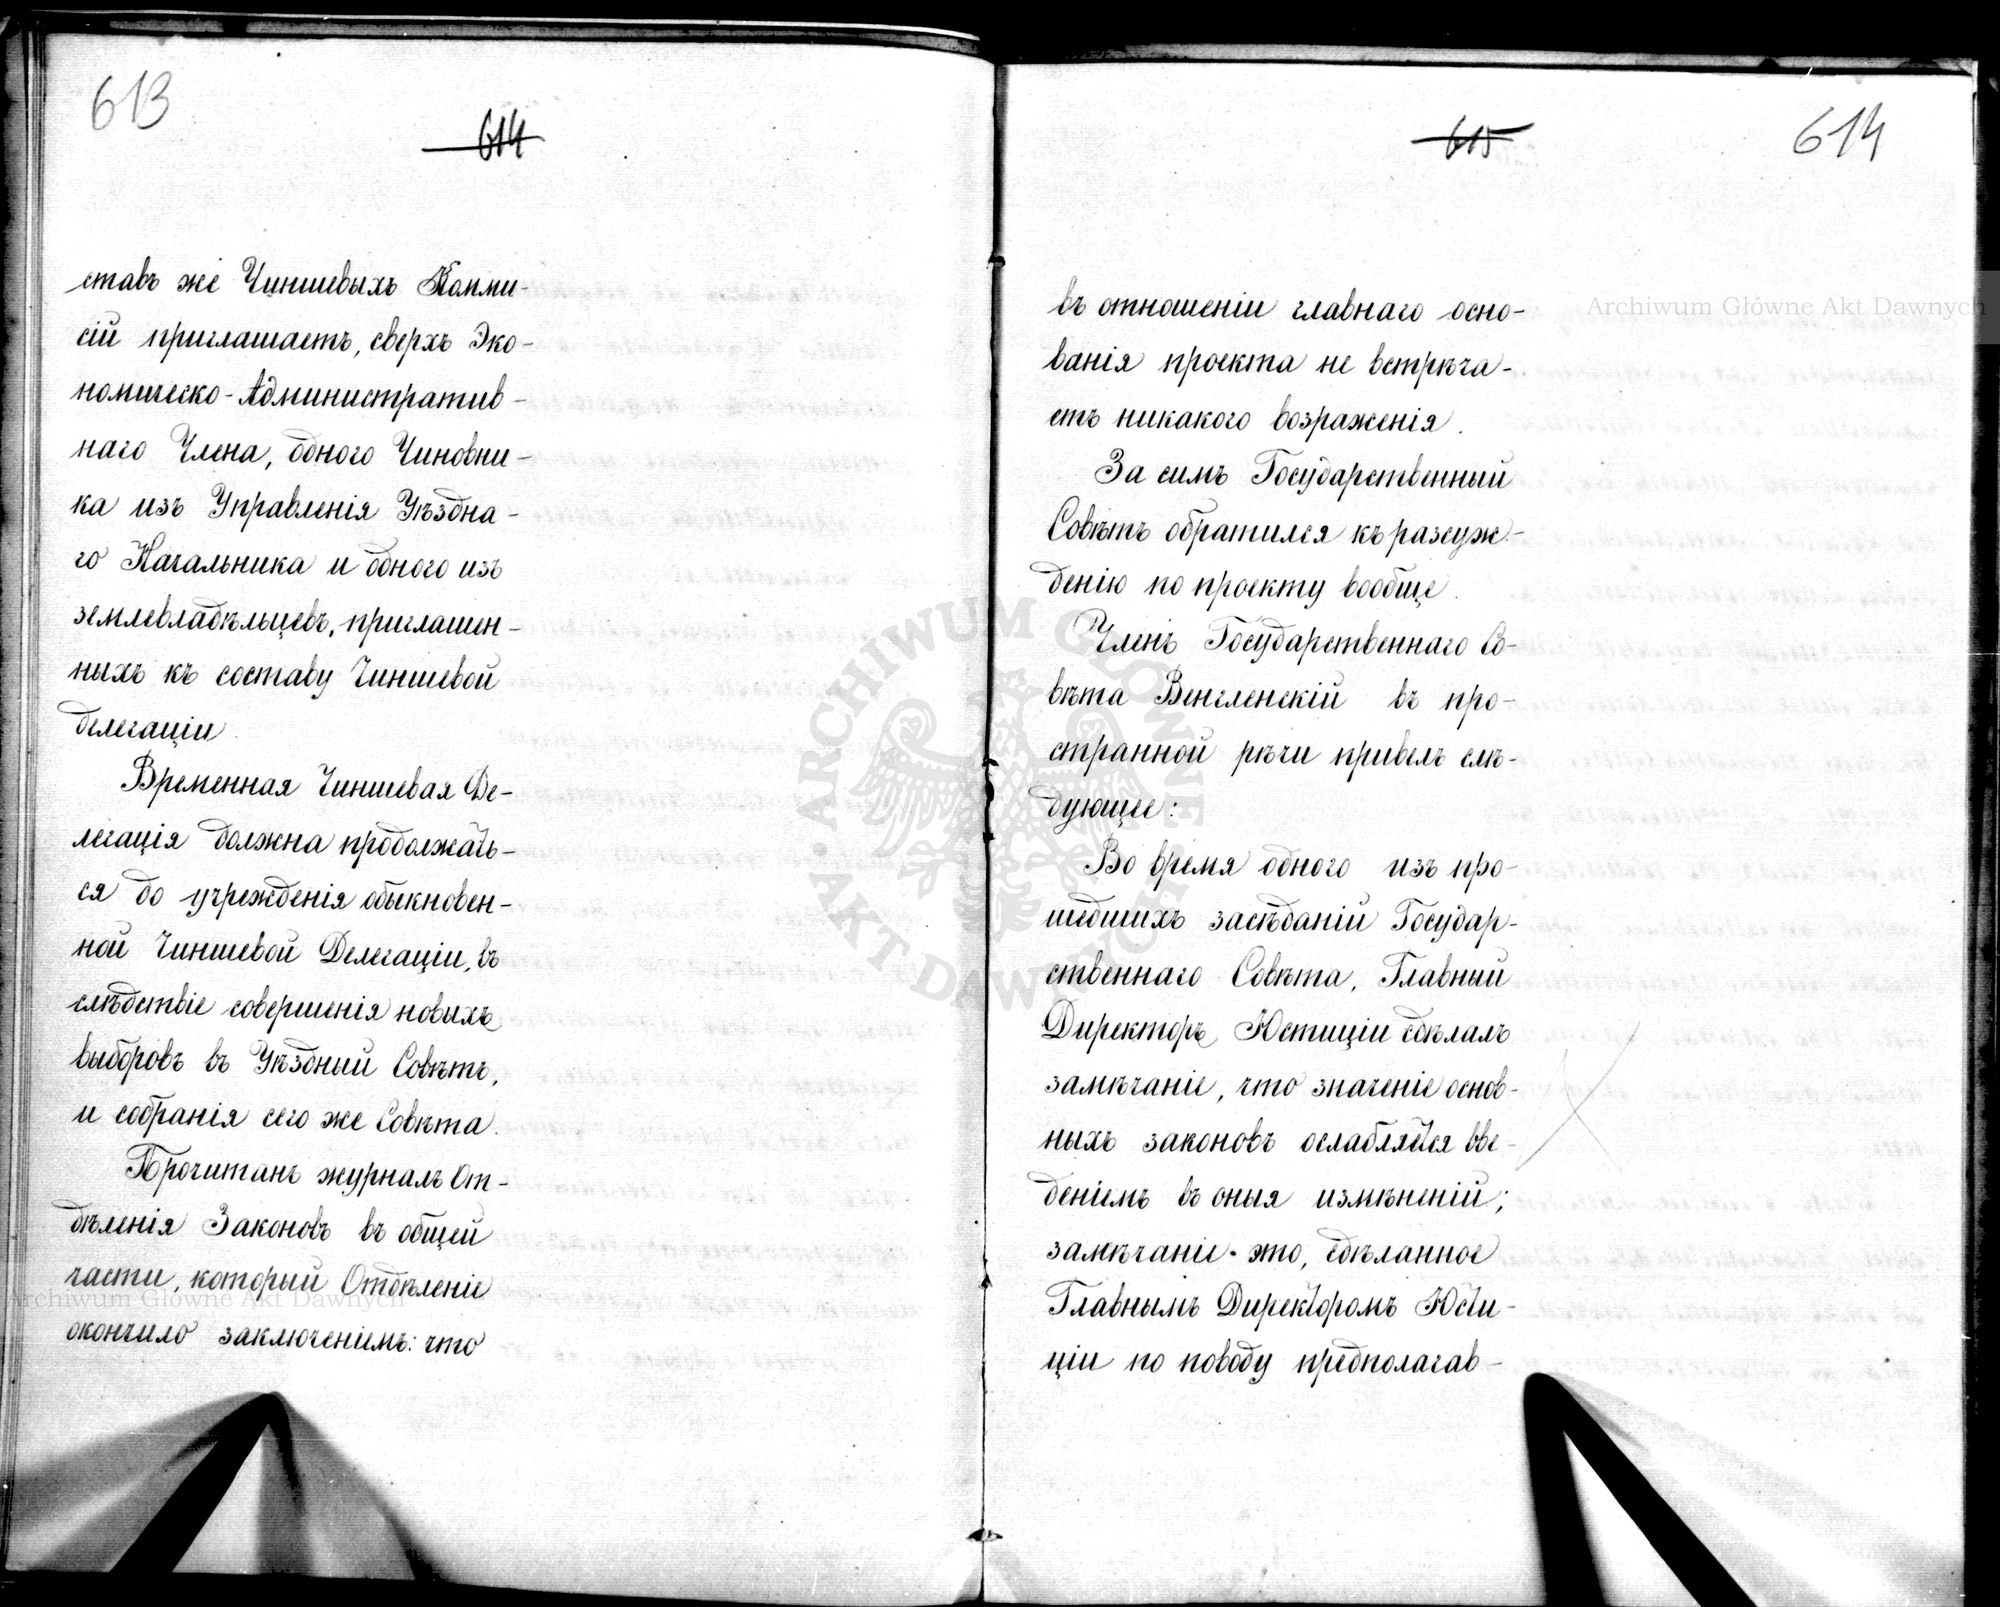 613
614
ставъ же Чиншевыхъ Комми-
сій приглашаетъ, сверхъ Эко-
номическо-Административ-
наго Члена, одного Чиновни-
ка изъ Управленія Уѣздна-
го Начальника и одного изъ
землевладѣльцевъ, приглашен-
ныхъ къ составу Чиншевой
делегаціи.
Временная Чиншевая Де-
легація должна продолжать-
ся до учрежденія обыкновен-
ной Чиншевой Делегаціи, въ
слѣдствіе совершенія новыхъ
выборовъ въ Уѣздный Совѣтъ,
и собранія сего же Совѣта.
Прочитанъ журналъ От-
дѣленія Законовъ въ общей
части, который Отдѣленіе
окончило заключеніемъ: что
615
614
въ отношеніи главнаго осно-
ванія проекта не встрѣча-
етъ никакого возраженія.
За симъ Государственный
Совѣтъ обратился къ разсуж-
денію по проекту вообще.
Членъ Государственнаго Со-
вѣта Венгленскій въ про-
странной рѣчи привелъ слѣ-
дующее:
Во время одного изъ про-
шедшихъ засѣданій Государ-
ственнаго Совѣта, Главный
Директоръ Юстиціи сдѣлалъ
замѣчаніе, что значеніе основ-
ныхъ законовъ ослабляется вве-
деніемъ въ оныя измѣненій;
замѣчаніе это, сдѣланное
Главнымъ Директоромъ Юсти-
ціи по поводу предполагав-
Archiwum Główne Akt Dawnych
Archiwum Główne Akt Dawnych
ARCHIWUM GŁÓWNE
AKT DAWNYCH